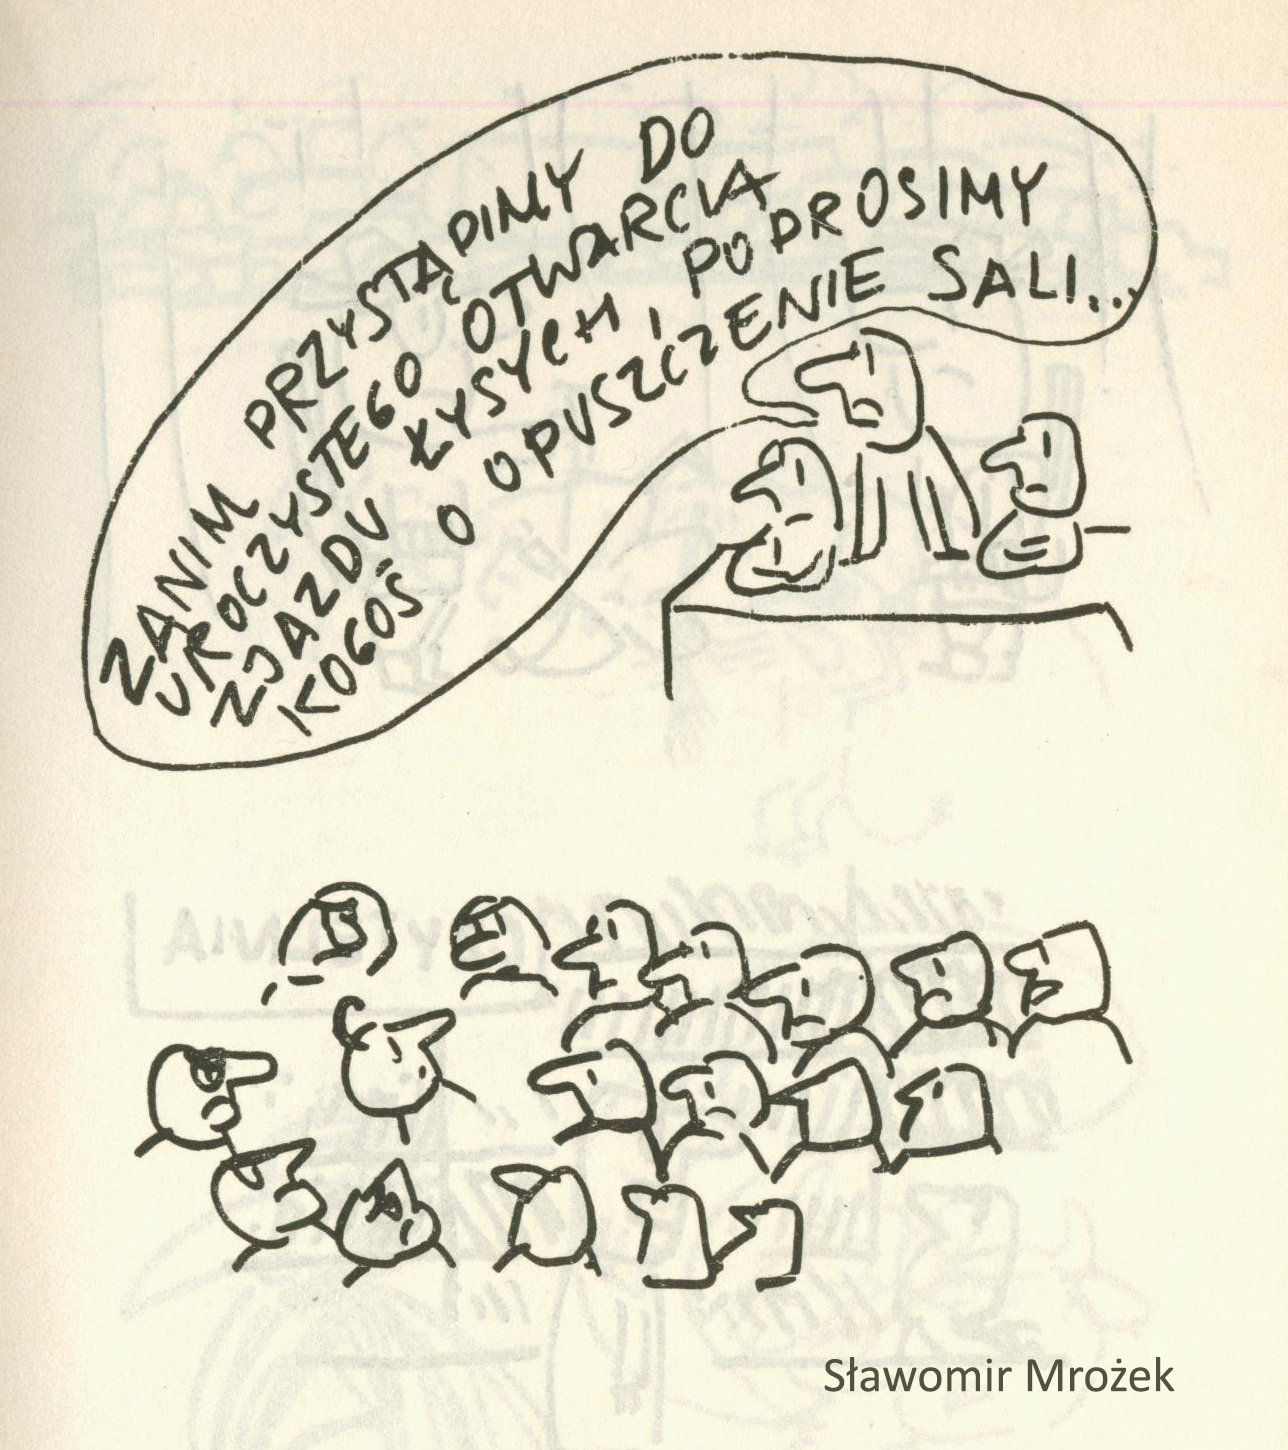 ZANIM PRZYSTĄPIMY DO
UROCZYSTEGO OTWARCIA
ZJAZDU ŁYSYCH, POPROSIMY
KOGOŚ O OPUSZCZENIE SALI...
Sławomir Mrożek